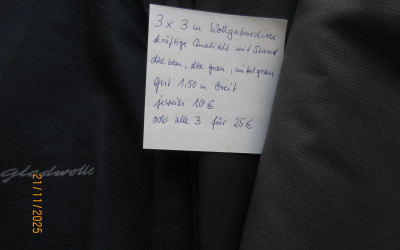 3 x 3 m Wollgabardine
kräftige Qualität mit Stand
dkl. blau, dkl. grau, mittelgrau
gut 1,50 m breit
jeweils 10 €
oder alle 3 für 25 €
gladwolle
21/11/2025